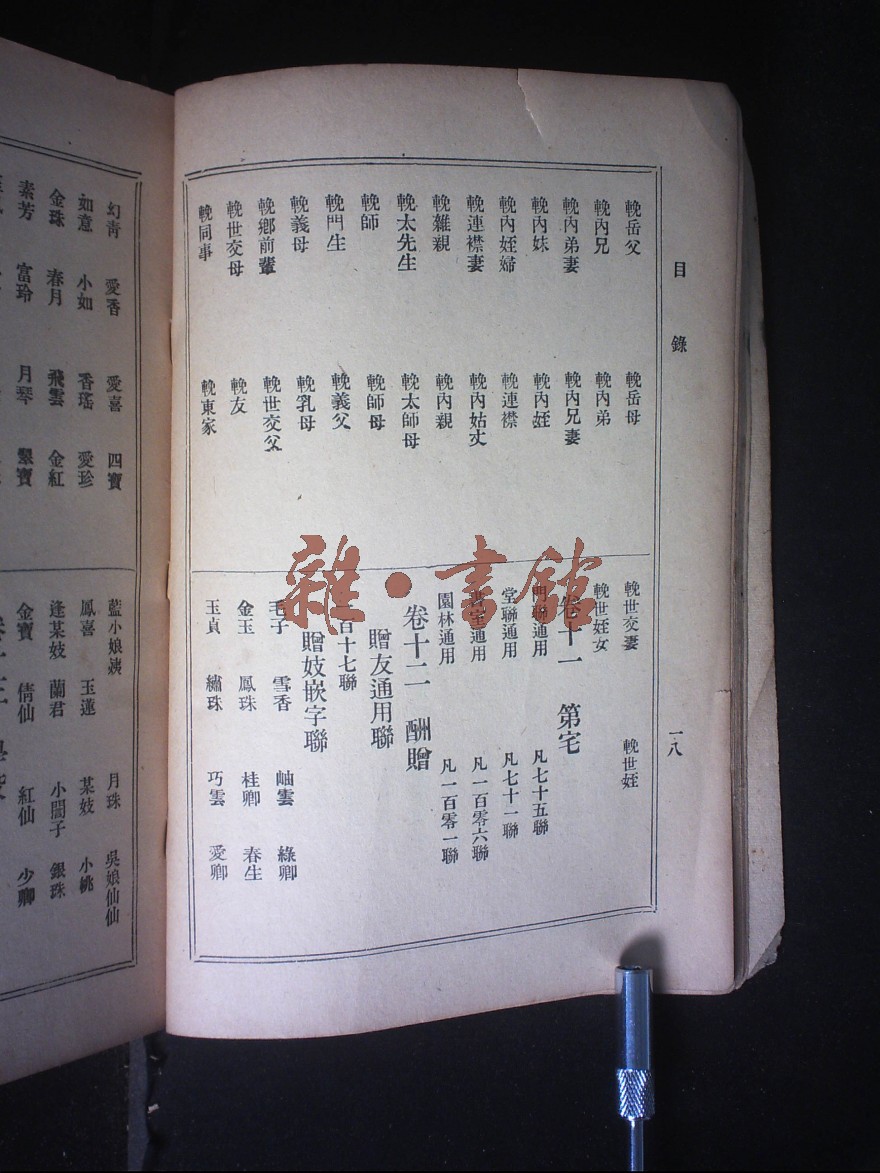 目錄
一八
輓岳父 輓岳母
輓內兄 輓內弟
輓內弟妻 輓內兄妻
輓內妹 輓內姪
輓內姪婦 輓連襟
輓連襟妻 輓內姑丈
輓雜親 輓內親
輓太先生 輓太師母
輓師 輓師母
輓門生 輓義父
輓義母 輓乳母
輓鄉前輩 輓世交父
輓世交母 輓友
輓同事 輓東家
輓世交妻 輓世姪
輓世姪女
卷十一 第宅
門聯通用 凡七十五聯
堂聯通用 凡七十一聯
室通用 凡一百零六聯
園林通用 凡一百零一聯
卷十二 酬贈
贈友通用聯
百十七聯
贈妓嵌字聯
毛子 雪香 岫雲 綠卿
金玉 鳳珠 桂卿 春生
玉貞 繡珠 巧雲 愛卿
幻青 愛香 愛喜 四寶
如意 小如 香瑤 愛珍
金珠 春月 飛雲 金紅
素芳 富玲 月琴 繫寶
藍小娘姨 月珠 吳娘仙仙
鳳喜 玉蓮 某妓 小桃
逢某妓 蘭君 小閶子 銀珠
金寶 倩仙 紅仙 少卿
雜·書館